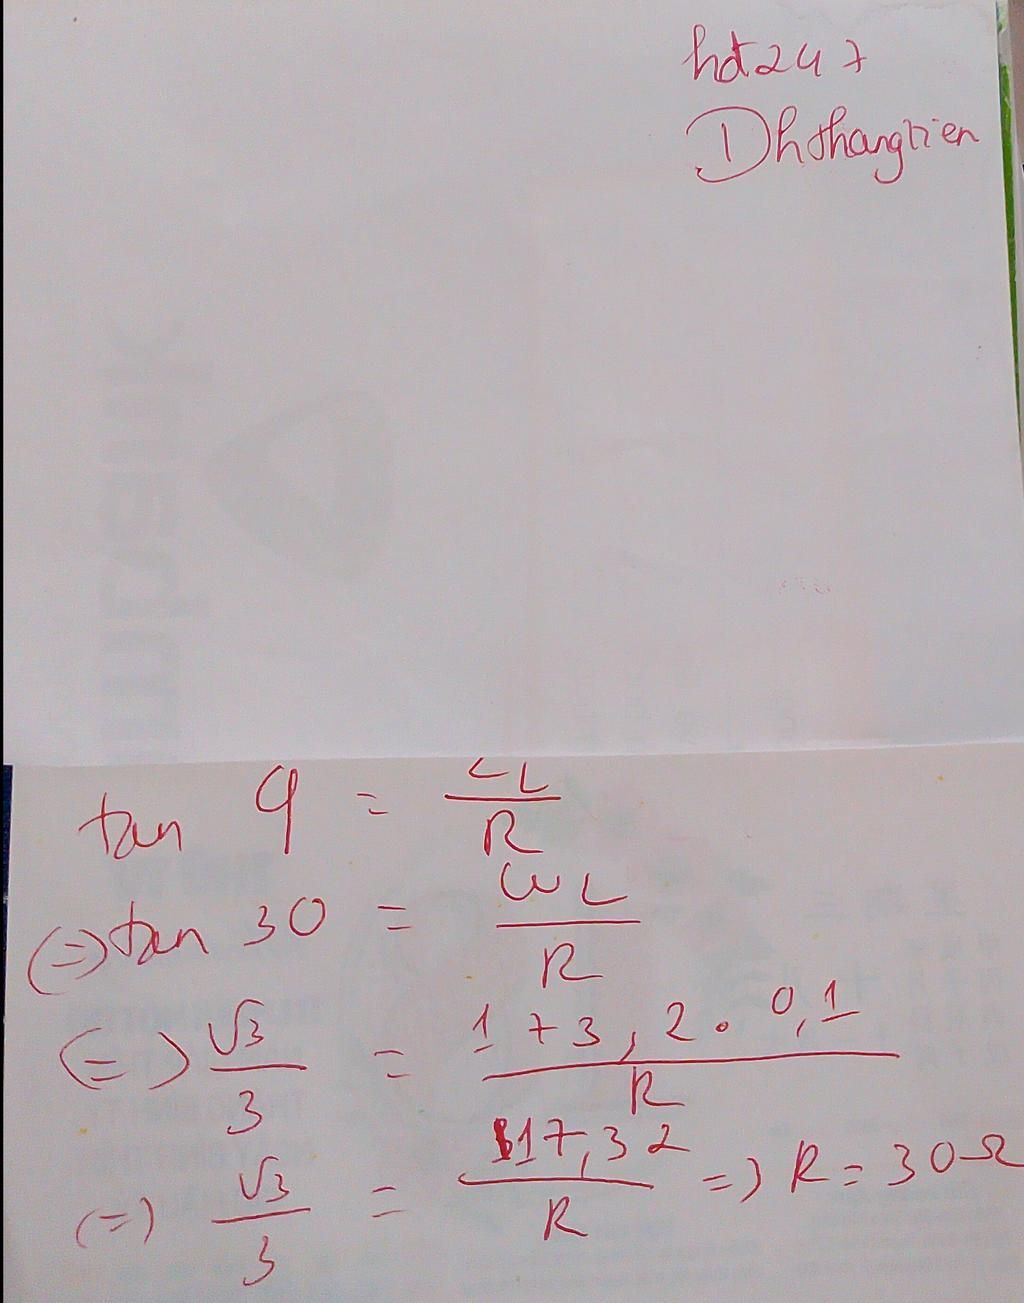 hdt247
Dhthangtien
tan φ = ZL / R
(=) tan 30 = ωL / R
(=) √3 / 3 = 173,2 . 0,1 / R
(=) √3 / 3 = 17,32 / R => R = 30Ω